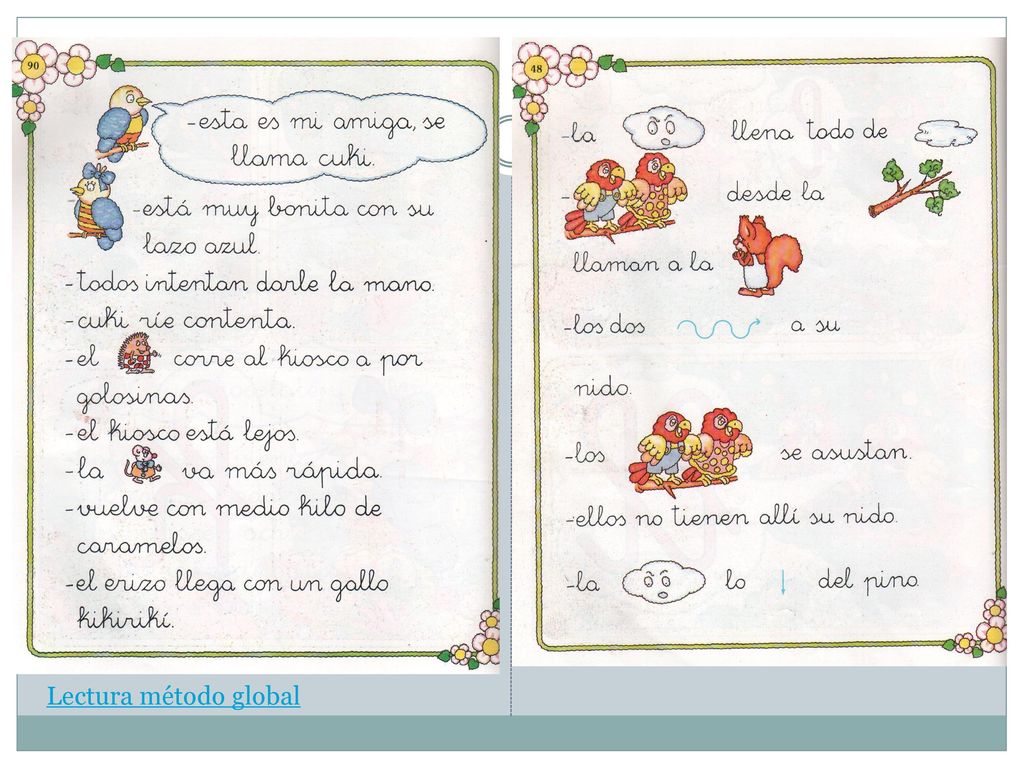 90
-esta es mi amiga, se
llama cuki.
-está muy bonita con su
lazo azul.
-todos intentan darle la mano.
-cuki ríe contenta.
-el corre al kiosco a por
golosinas.
-el kiosco está lejos.
-la va más rápida.
-vuelve con medio kilo de
caramelos.
-el erizo llega con un gallo
kikirikí.
48
-la llena todo de
- desde la
llaman a la
-los dos a su
nido.
-los se asustan.
-ellos no tienen allí su nido.
-la lo del pino.
Lectura método global